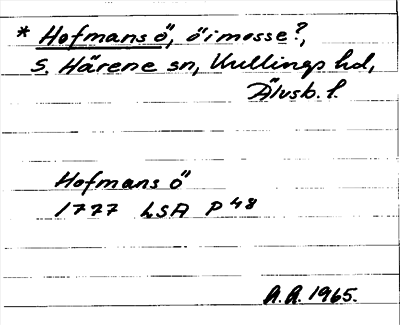 * Hofmans ö, ö i mosse?,
S. Härene sn, Kullings hd,
Älvsb. l.
Hofmans ö
1777 LSA P 48
A.A. 1965.